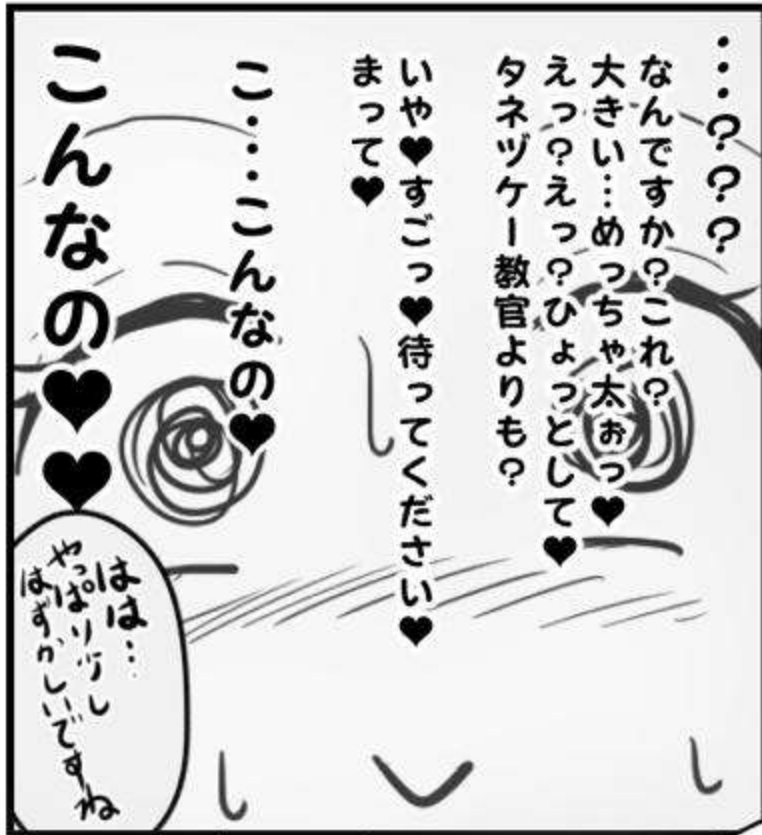 …???
なんですか?これ?
大きい…めっちゃ太ぉっ♥
えっ?えっ?ひょっとして♥
タネヅケー教官よりも?
いや♥すごっ♥待ってください♥
まって♥
こ……こんなの♥
こんなの♥♥
はは…
やっぱり少し
はずかしいですね